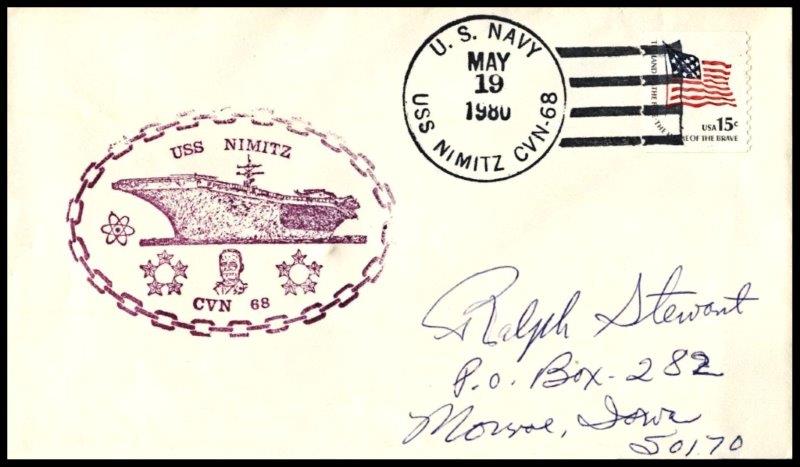 U. S. NAVY
MAY
19
1980
USS NIMITZ CVN-68
THE LAND OF THE FREE, THE HOME OF THE BRAVE
USA 15c
USS NIMITZ
CVN 68
Ralph Stewart
P.O. Box - 282
Monroe, Iowa
50170